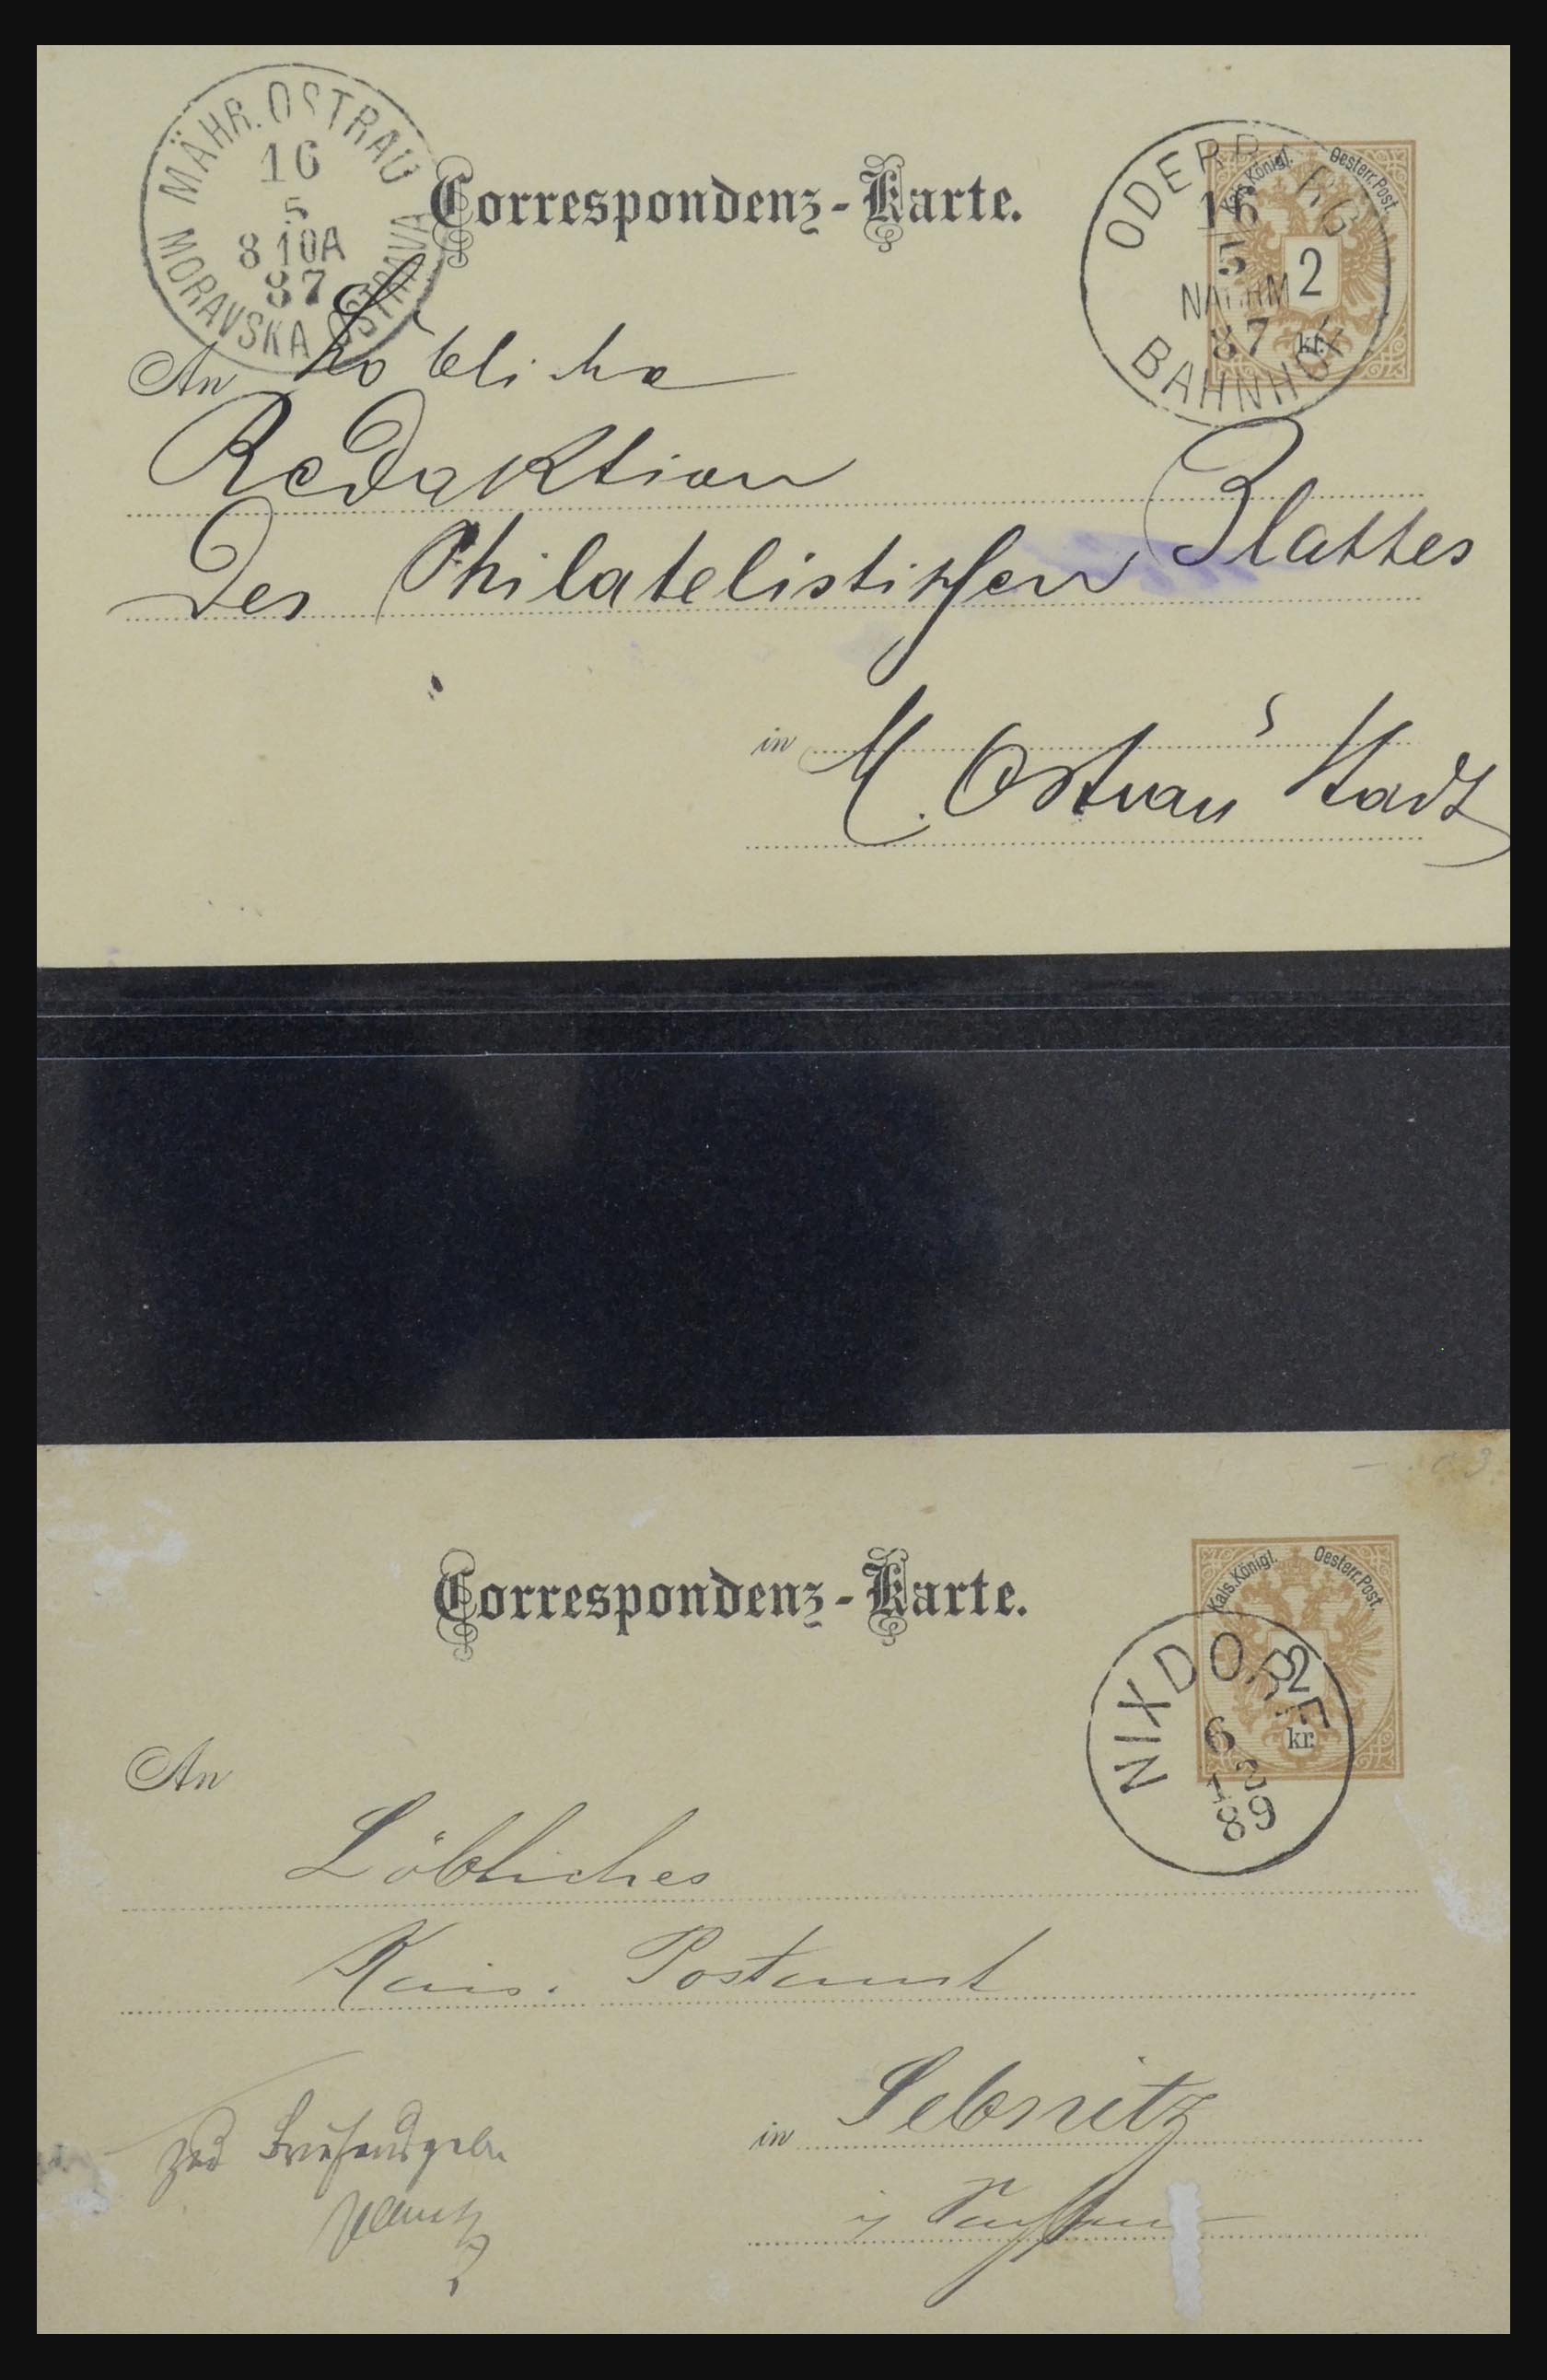 MÄHR. OSTRAU
16
5
8 10A
87
MORAVSKA OSTRAVA
Correspondenz-Karte.
ODERBERG
16
5
NACHM
87
BAHNHOF
Kais. Königl. Oesterr. Post.
2
kr.
An Löbliche
Redaktion
des Philatelistischen Blattes
in M. Ostrau Stadt
Correspondenz-Karte.
Kais. Königl. Oesterr. Post.
2
kr.
NIXDORF
6
2
89
An
Löbliches
Kais. Postamt
in Sebnitz
Sachsen